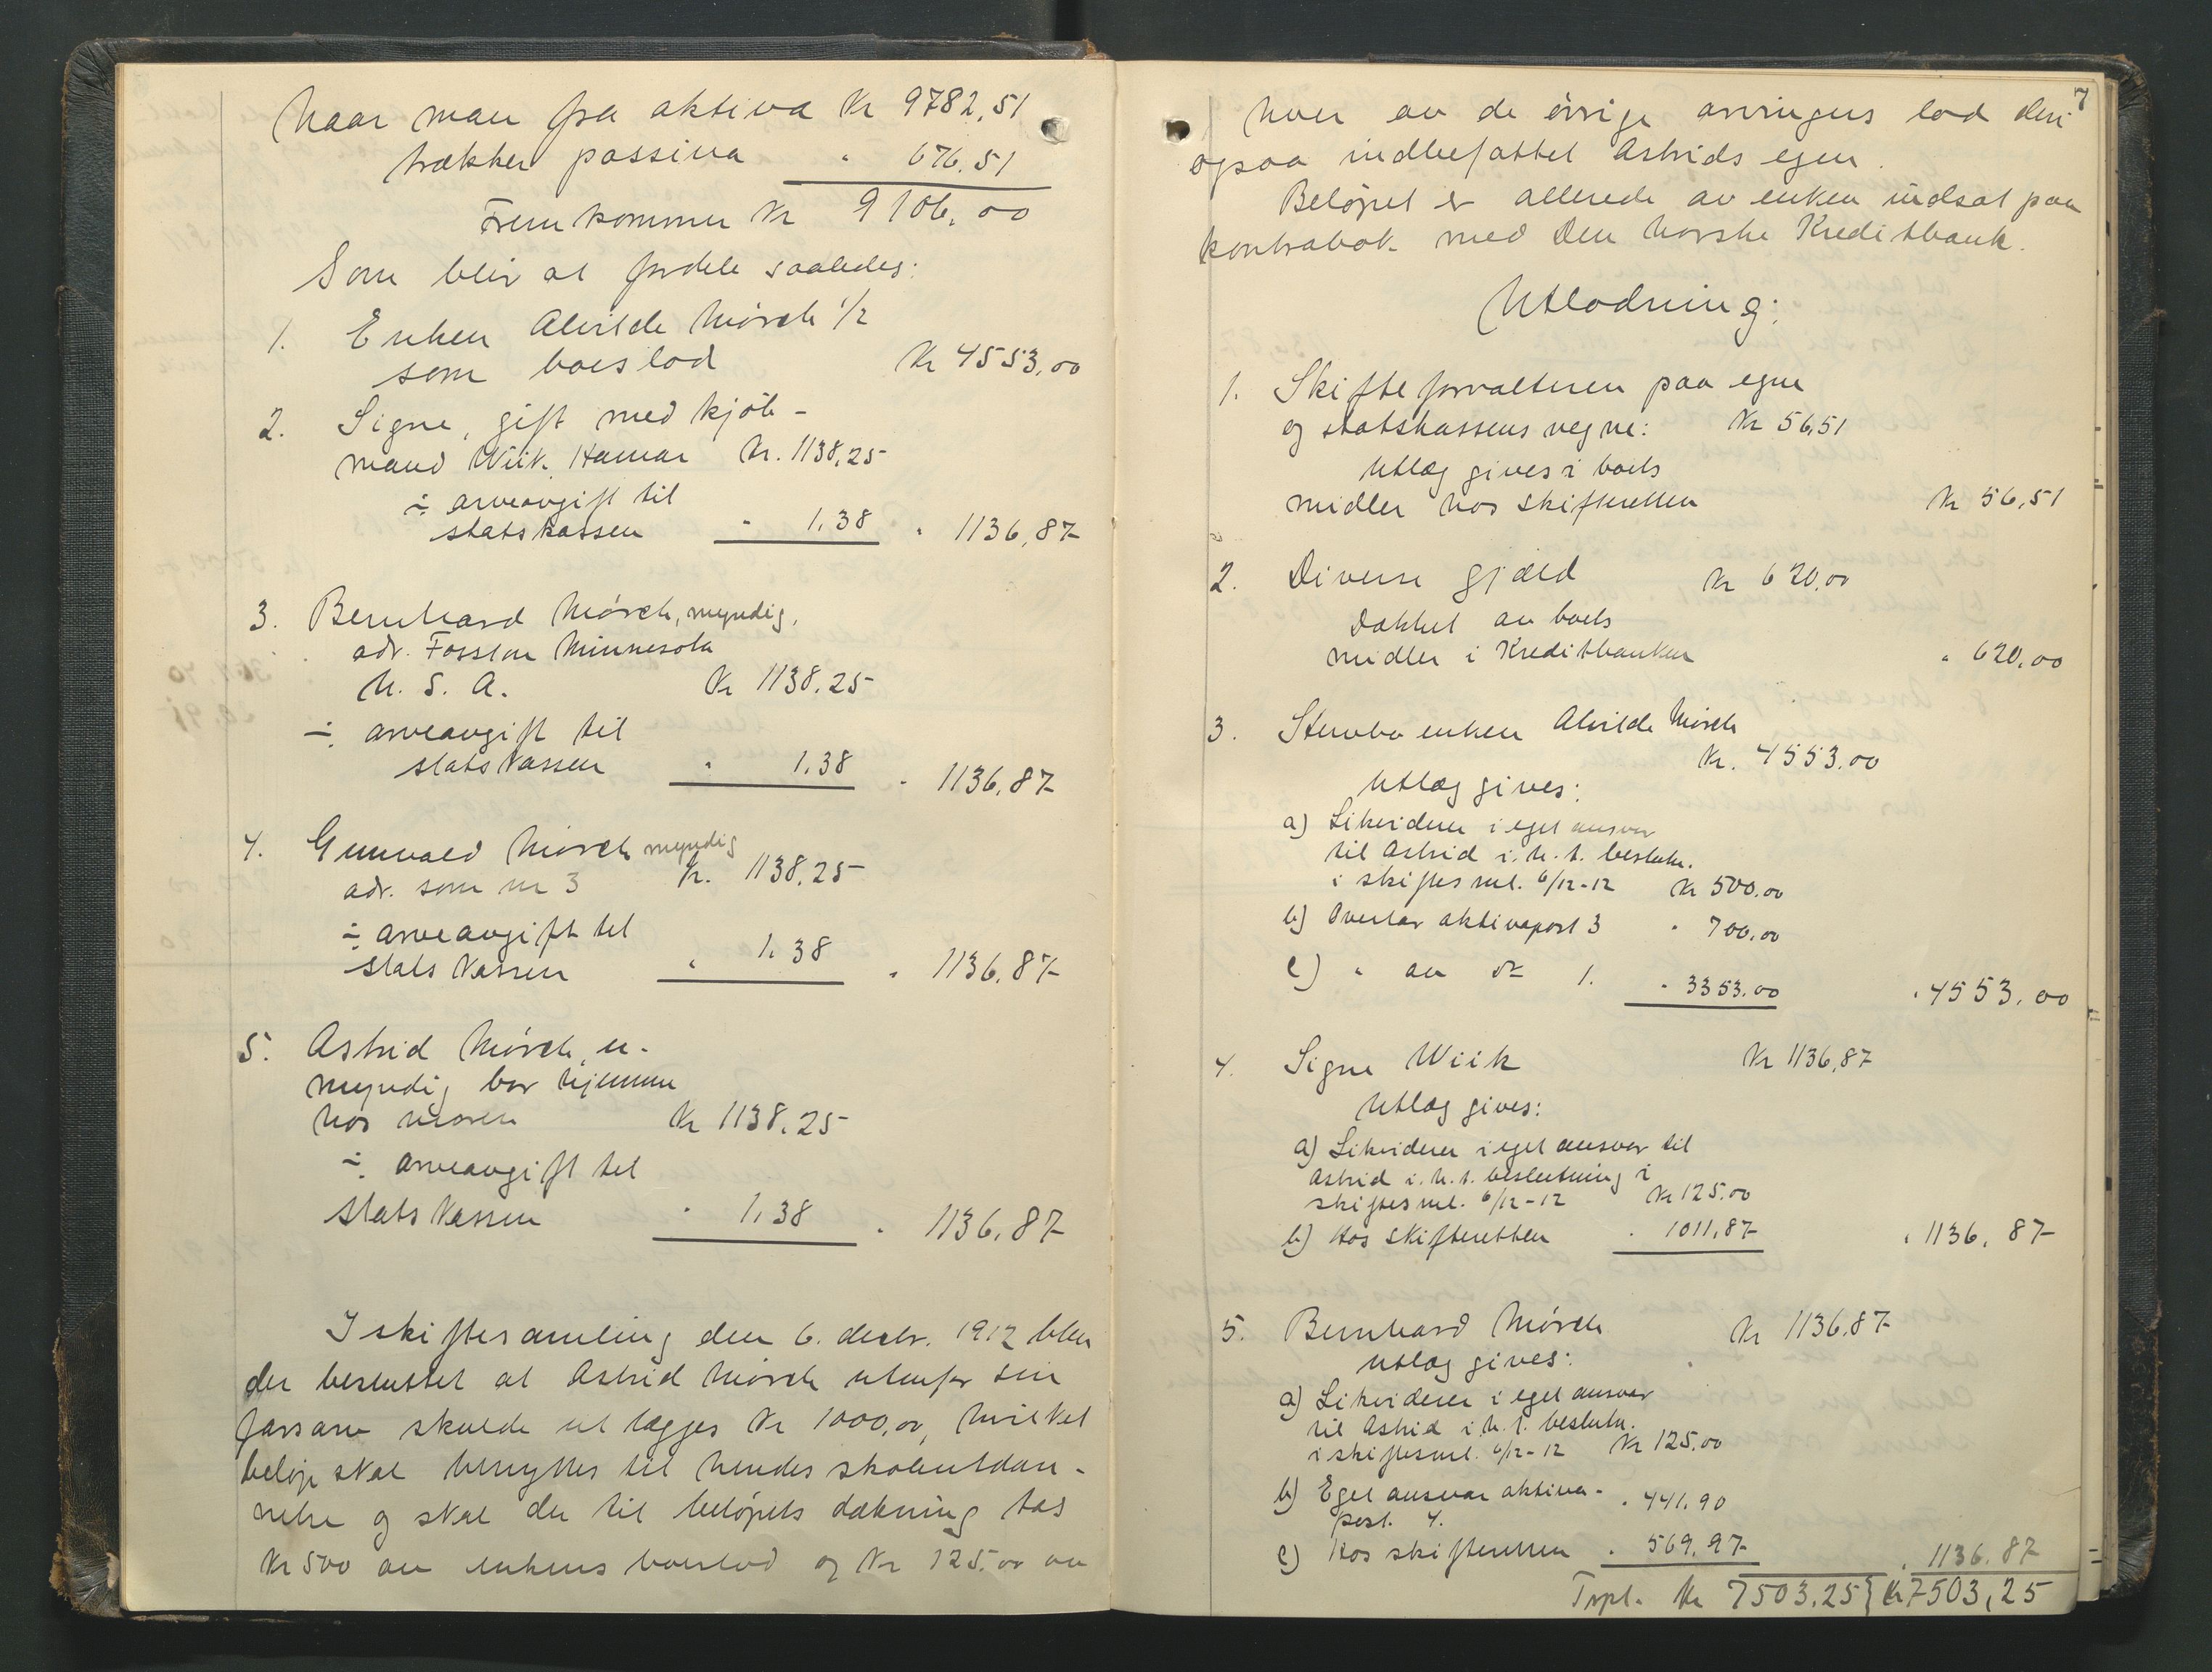 Naar man fra aktiva Kr 9782,51
trækker passiva " 676.51
Fremkommer Kr 9106,00
Som blir at fordele saaledes:
1. Enken Alvilde Mörch 1/2
som boeslod Kr 4553,00
2. Signe, gift med kjöb-
mand Wiik, Hamar Kr. 1138,25
÷ arveavgift til
statskassen " 1,38 " 1136,87
3. Bernhard Mörch, myndig,
adr. Fosston Minnesota
U. S. A. Kr 1138,25
÷ arveavgift til
statskassen " 1,38 " 1136,87
4. Gunvald Mörch myndig
adr. som nr 3 Kr. 1138,25
÷ arveavgift til
statskassen " 1,38 " 1136,87
5. Astrid Mörch, u-
myndig bor hjemme
hos moren Kr 1138,25
÷ arveavgift til
statskassen " 1,38 " 1136,87
I skiftesamling den 6. decbr. 1912 blev
der besluttet at Astrid Mörch utenfor sin
farsarv skulde utlægges Kr 1000,00, hvilket
belöp skal benyttes til hendes skoleutdan-
nelse og skal der til belöpets dækning tas
Kr 500 av enkens boeslod og Kr 125.00 av
7
hver av de övrige arvingers lod deri
ogsaa indbefattet Astrids egen.
Belöpet er allerede av enken indsat paa
kontrabok med Den norske Kreditbank.
Utlodning:
1. Skifteforvalteren paa egne
og statskassens vegne: Kr 56,51
Utlæg gives i boets
midler hos skifteretten Kr 56,51
2. Diverse gjæld Kr 620,00
Dækket av boets
midler i Kreditbanken " 620,00
3. Stervbo enken Alvilde Mörch
Kr. 4553.00
Utlæg gives:
a) Likviderer i eget ansvar
til Astrid i. h. t. beslutn.
i skiftesml. 6/12-12 Kr 500.00
b) Overtar aktivapost 3 " 700,00
c) " av do 1. " 3353.00 " 4553,00
4. Signe Wiik Kr 1136,87
Utlæg gives:
a) Likviderer i eget ansvar til
Astrid i. h. t. beslutning i
skiftesml. 6/12-12 Kr 125.00
b) Hos skifteretten " 1011,87 " 1136,87
5. Bernhard Mörch Kr 1136,87
Utlæg gives:
a) Likviderer i eget ansvar
til Astrid i h. t. beslutn.
i skiftesml. 6/12-12 Kr 125.00
b) Eget ansvar aktiva- " 441,90
post. 4.
c) Hos skifteretten " 569,97 " 1136.87
Trpt. Kr 7503,25 } Kr 7503,25